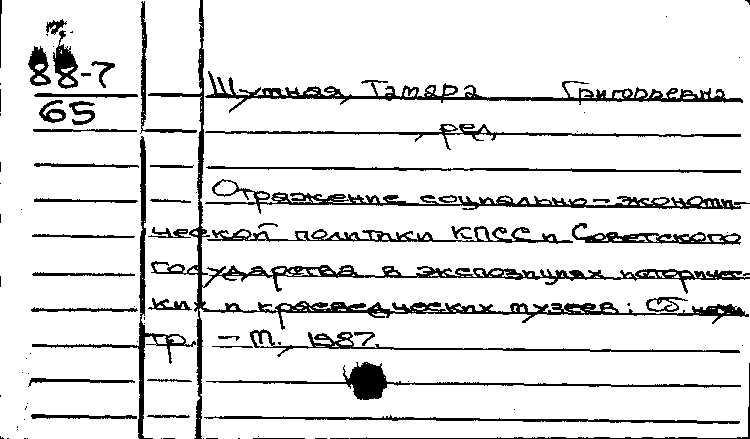 88-7
65
Шутная, Тамара Григорьевна
, ред.
Отражение социально-экономи-
ческой политики КПСС и Советского
государства в экспозициях историчес-
ких и краеведческих музеев: Сб. научн.
тр. - М., 1987.